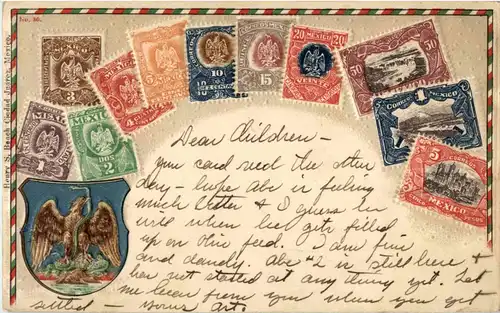 No. 36.
Henry S. Beach Ciudad Juarez, Mexico.
MEXICO
3
4
5
10
15
MEXICO
20 20
VEINTE
50 50
CORREOS MEXICO
1
5 5
MEXICO
1
DOS
2
Dear Children –
your card rec'd the other
day – hope Abe is feeling
much better & I guess he
will when he gets filled
up on Ohio feed. I am fine
and dandy. Abe #2 is still here &
has not started at any thing yet. Let
me hear from you when you get
settled – yours Art.